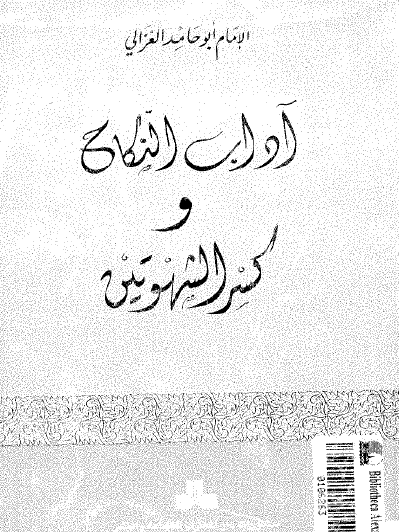 الإمام أبو حامد الغزالي
آداب النكاح
و
كسر الشهوتين
Bibliotheca Alex